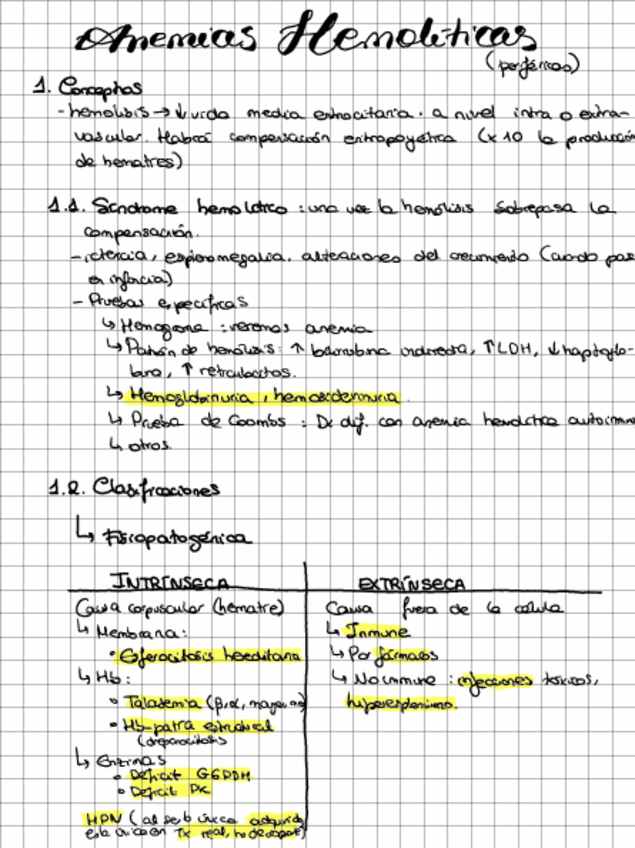 Anemias Hemolíticas
(periféricas)
1. Conceptos
- hemólisis → ↓ vida media eritrocitaria. a nivel intra o extra-
vascular. Habrá compensación eritropoyética (x 10 la producción
de hematíes)
1.1. Síndrome hemolítico : una vez la hemólisis sobrepasa la
compensación.
- ictericia, esplenomegalia. alteraciones del crecimiento (cuando pas
en infancia)
- Pruebas específicas
↳ Hemograma : veremos anemia
↳ Patrón de hemólisis: ↑ bilirrubina indirecta, ↑ LDH, ↓ haptoglo-
bina, ↑ reticulocitos.
↳ Hemoglobinuria, hemosiderinuria.
↳ Prueba de Coombs : Dx dif. con anemia hemolítica autoinmun
↳ otros.
1.2. Clasificaciones
↳ Fisiopatogénica
INTRÍNSECA EXTRÍNSECA
Causa corpuscular (hematíe) Causa fuera de la célula
↳ Membrana: ↳ Inmune
• Esferocitosis hereditaria ↳ Por fármacos
↳ Hb: ↳ No inmune : infecciones tóxicos,
• Talasemia (β, α, mayor, hiperesplenismo.
• Hb-patía estructural
(drepanocitosis
↳ Enzimas
• Déficit G6PDH
• Déficit PK
HPN (al ser la única adquirida
es la única con Tx real, no de soporte)